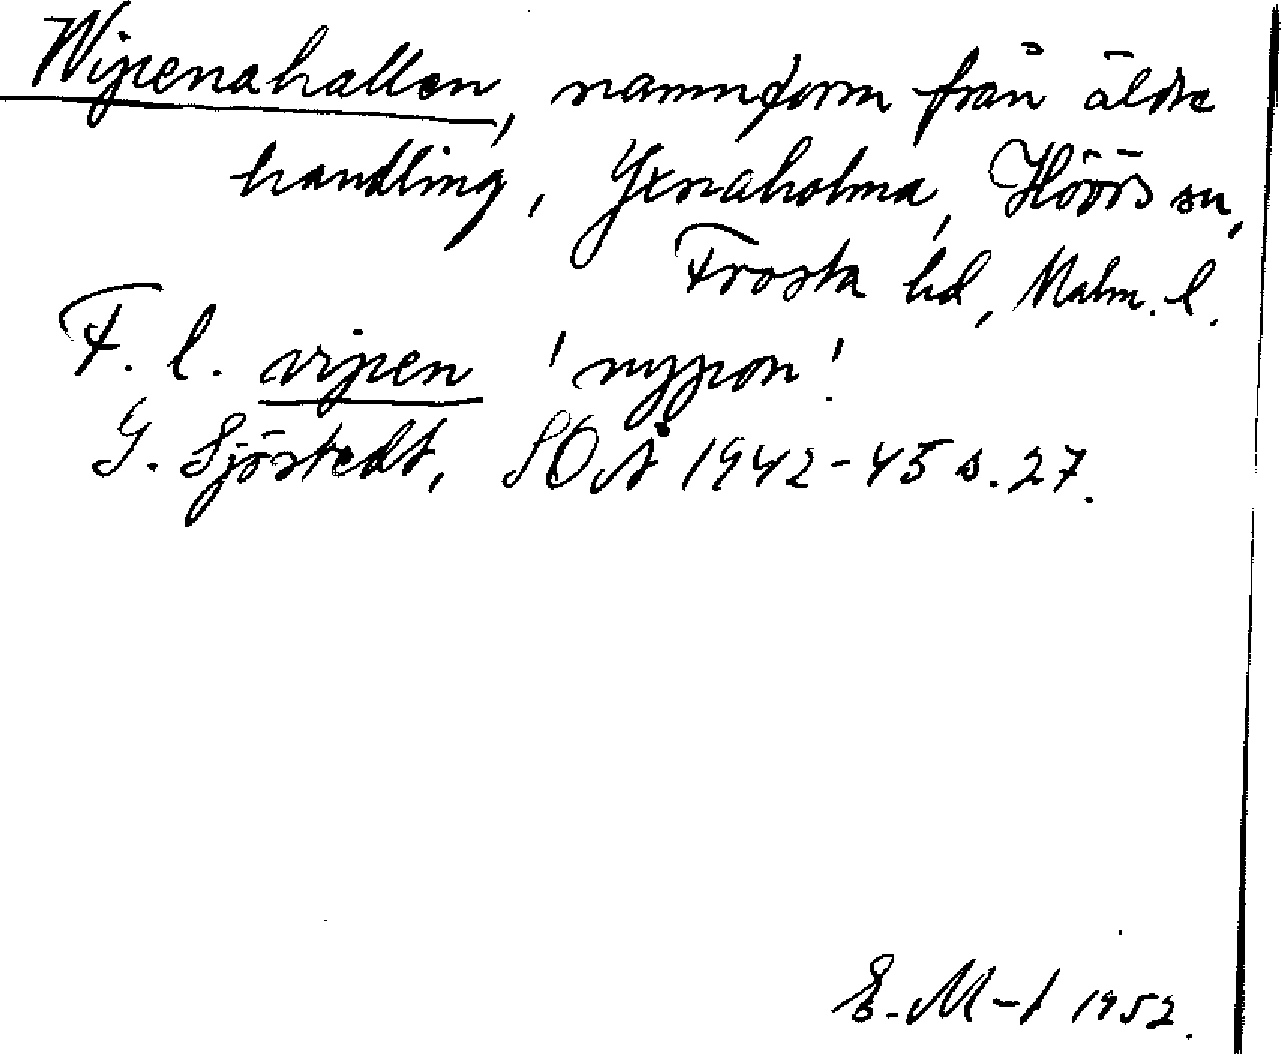 Wipenahallen, namnform från äldre
handling, Yxnaholma, Höörs sn,
Frosta hd, Malm. l.
F. l. vipen 'nypon'.
G. Sjöstedt, SOÅ 1942-45 s. 27.
E. M-t 1952.